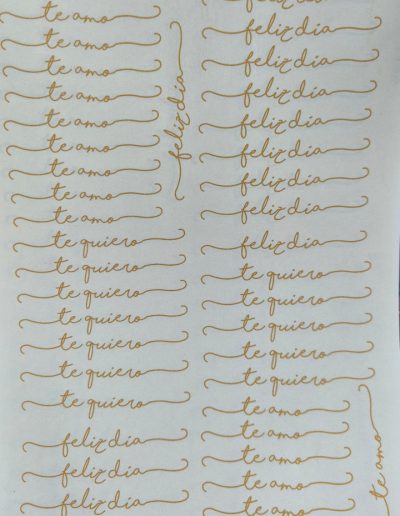 te amo
te amo
te amo
te amo
te amo
te amo
te amo
te amo
te amo
te quiero
te quiero
te quiero
te quiero
te quiero
te quiero
te quiero
feliz dia
feliz dia
feliz dia
feliz dia
feliz dia
feliz dia
feliz dia
feliz dia
feliz dia
feliz dia
feliz dia
feliz dia
te quiero
te quiero
te quiero
te quiero
te quiero
te amo
te amo
te amo
te amo
te amo
te amo